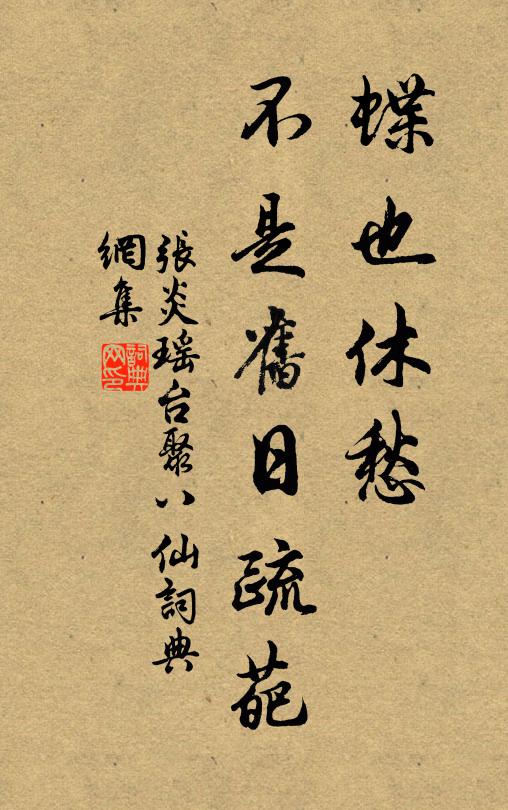 蝶也休愁
不是舊日疏葩
張炎瑶台聚八仙詞典
網集
詞典
网印